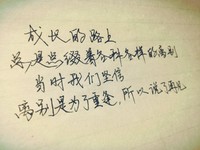 成长的路上
总是点缀着各种各样的离别
当时我们坚信
离别是为了重逢，所以说了再见